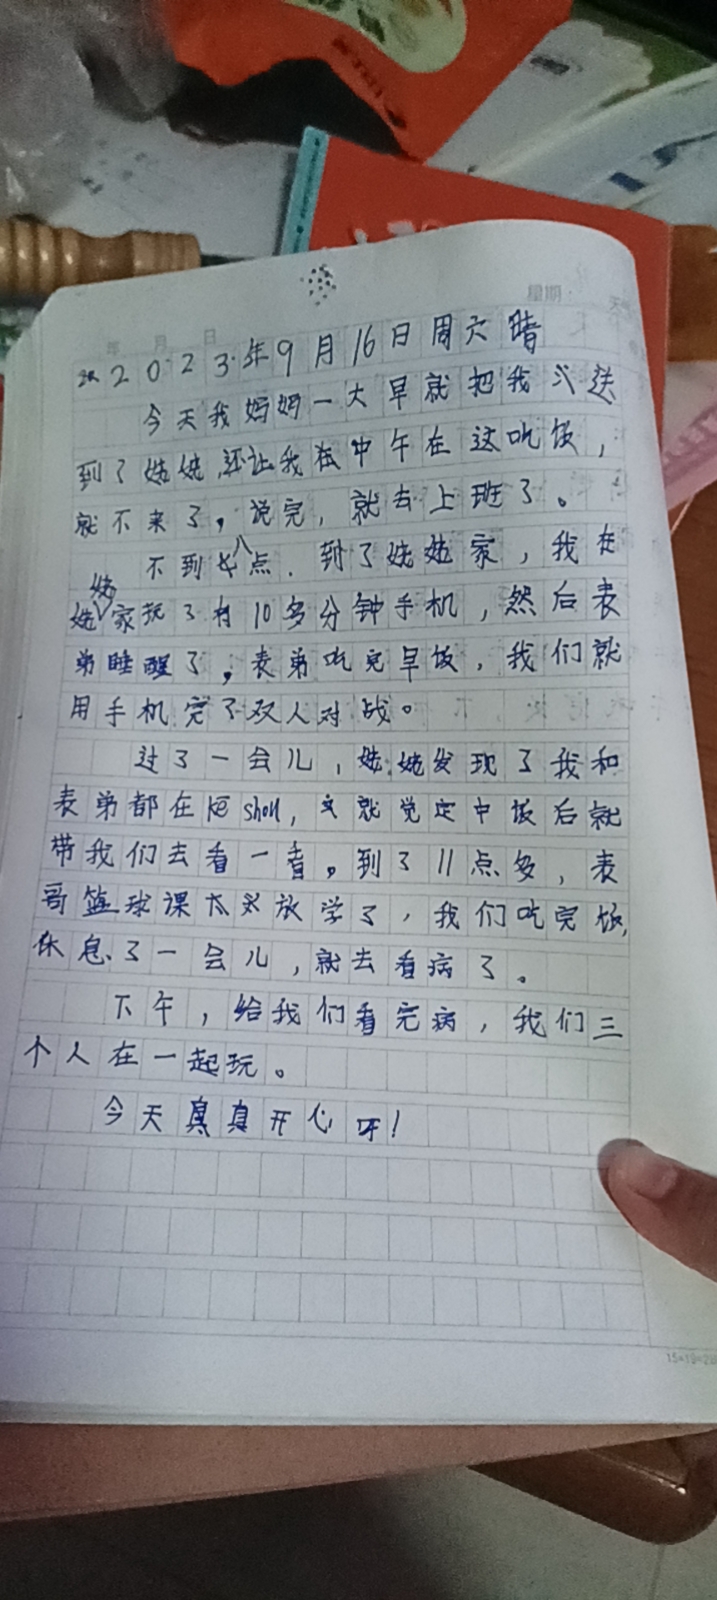 年 月 日 星期
2023年9月16日周六 晴
今天我妈妈一大早就把我送
到了姑姑,还让我在中午在这吃饭,
就不来了,说完,就去上班了。
不到八点.到了姑姑家,我在
姑姑家玩了有10多分钟手机,然后表
弟睡醒了,表弟吃完早饭,我们就
用手机完了双人对战。
过了一会儿,姑姑发现了我和
表弟都在,就觉定中饭后就
带我们去看一看,到了11点多,表
哥篮球课放学了,我们吃完饭,
休息了一会儿,就去看病了。
下午,给我们看完病,我们三
个人在一起玩。
今天真真开心呀!